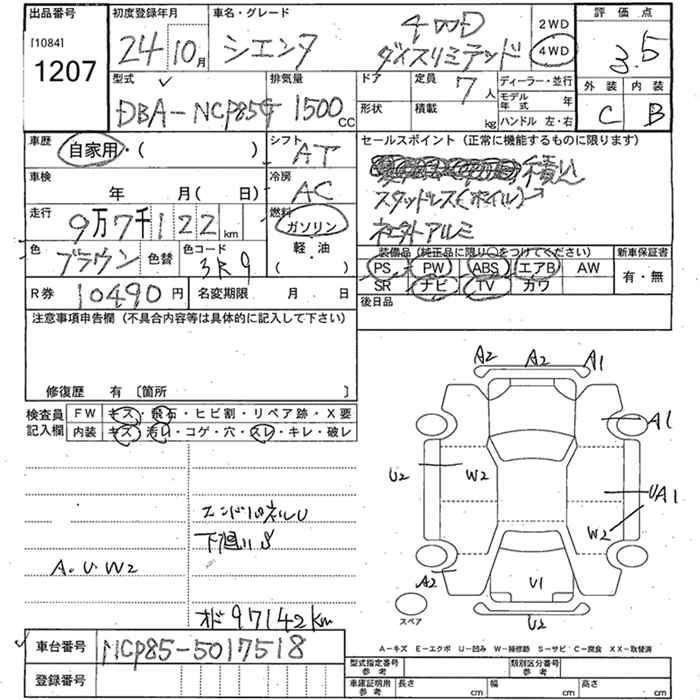 出品番号 初度登録年月 車名・グレード 評価点
[1084] 1207 24 10月 シエンタ 4WD ダイスリミテッド 2WD 4WD 3.5
外装 内装
C B
型式 排気量 ドア 定員 7人 ディーラー・並行
DBA-NCP85G 1500CC 形状 積載 kg モデル年式 年
ハンドル 左・右
車歴 自家用・( ) シフト AT セールスポイント (正常に機能するものに限ります)
積込
車検 年 月( 日) 冷房 AC スタッドレス(ホイル)
走行 9万7千122km 燃料 ガソリン 社外アルミ
色 ブラウン 色替 色コード 3R9 軽・油 ( )
装備品 (純正品に限り○をつけてください) 新車保証書
PS PW ABS エアB AW 有・無
SR ナビ TV カワ
R券 10490円 名変期限 月 日 後日品
注意事項申告欄 (不具合内容等は具体的に記入して下さい)
修復歴 有 〔箇所 〕
検査員記入欄 FW キズ・飛石・ヒビ割・リペア跡・X要
内装 キズ・汚れ・コゲ・穴・スレ・キレ・破レ
A2 A2 A1
A1
U2 W2 UA1
W2
エンドパネルU
下廻りS
A.U.W2
A2 U1
スペア U2
オド97142km
A-キズ E-エクボ U-凹み W-補修跡 S-サビ C-腐食 XX-取替済
車台番号 NCP85-5017518
登録番号
型式指定番号 参考 類別区分番号 参考
車庫証明用 参考 長さ cm 幅 cm 高さ cm